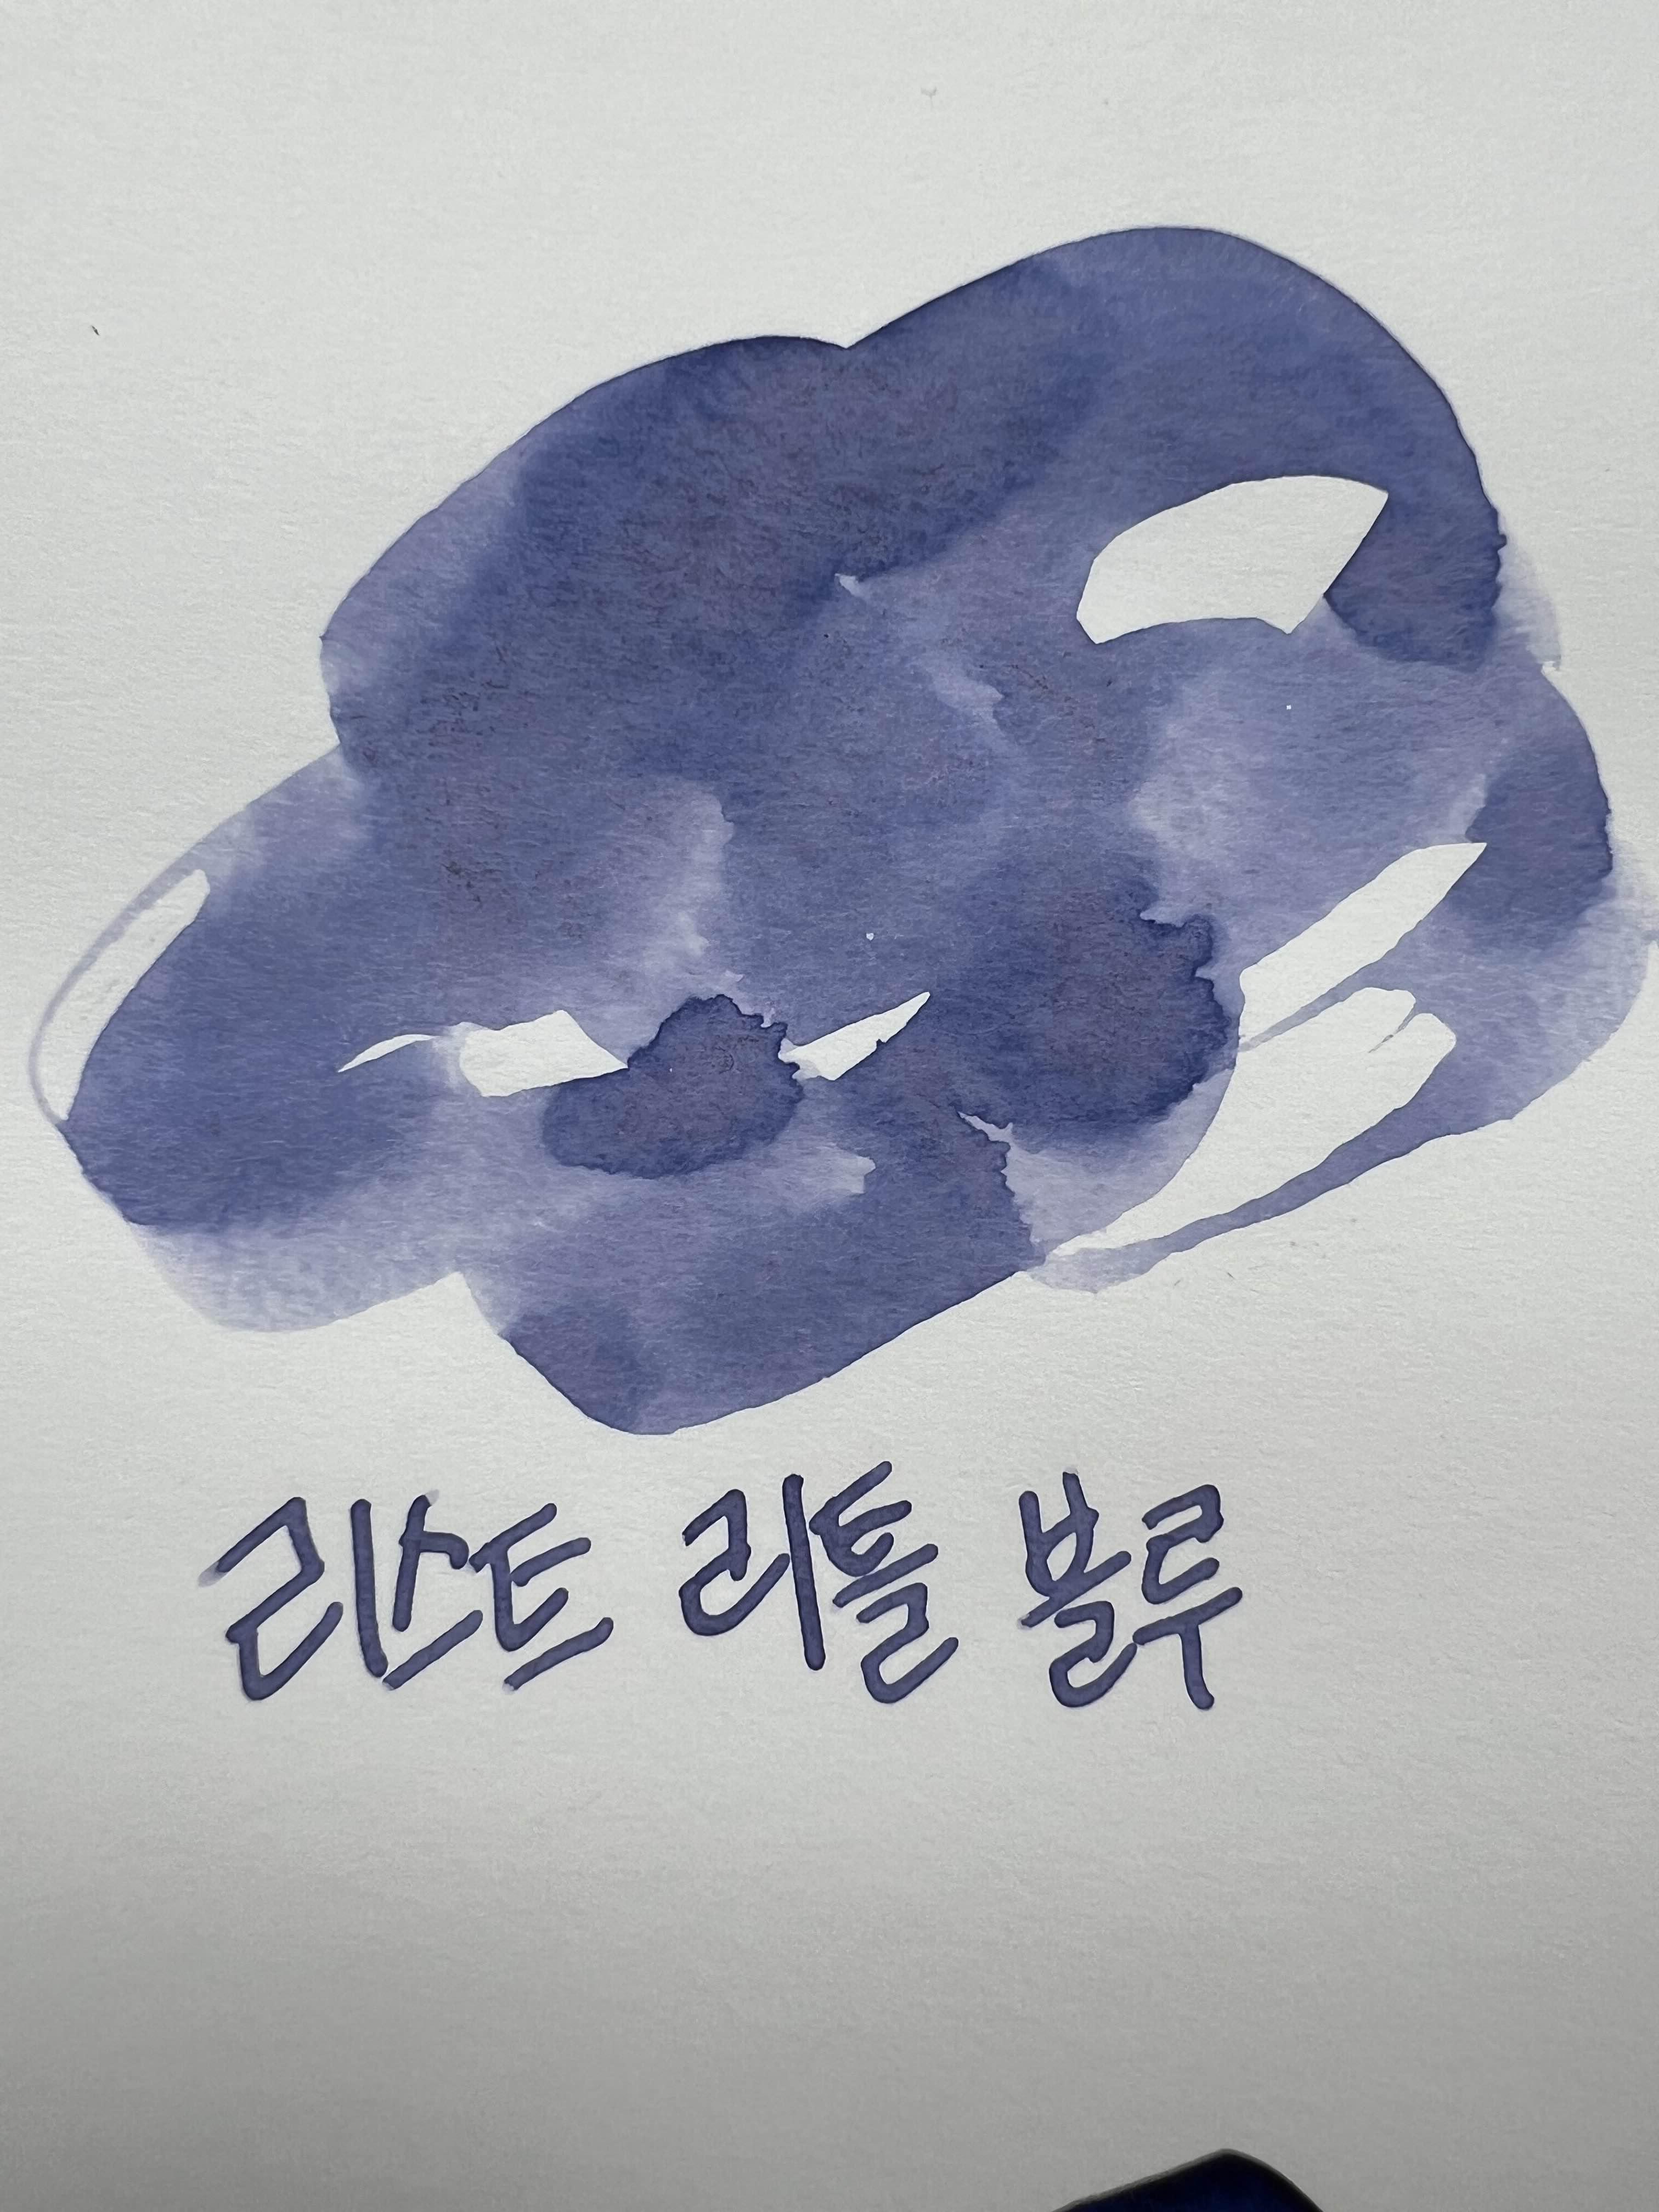 리스트 리틀 블루